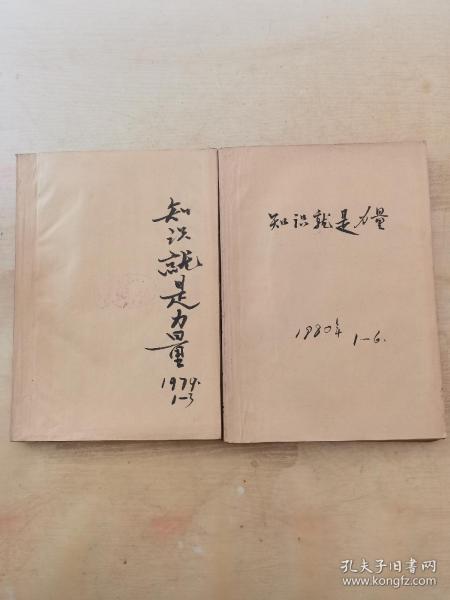 知识就是力量
1979.
1-3
知识就是力量
1980年
1-6.
孔夫子旧书网
www.kongfz.com